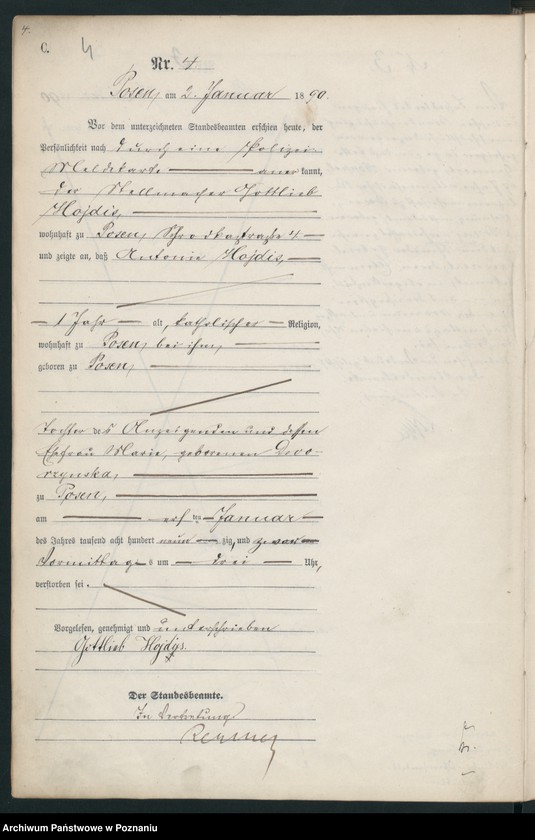 4.
C. 4
Nr. 4
Posen, am 2. Januar 1890.
Vor dem unterzeichneten Standesbeamten erschien heute, der
Persönlichkeit nach durch eine Polizei-
Meldekarte anerkannt,
der Stellmacher Gottlieb
Hojdis,
wohnhaft zu Posen, 4
und zeigte an, daß Antonie Hojdis,
1 Jahr alt, katholischer Religion,
wohnhaft zu Posen, bei ihm,
geboren zu Posen,
Tochter des Anzeigenden und dessen
Ehefrau Marie, geborenen Dwo-
rzynska,
zu Posen,
am ersten Januar
des Jahres tausend acht hundert neunzig, und zwar
Vormittags um drei Uhr,
verstorben sei.
Vorgelesen, genehmigt und unterschrieben
Gottlieb Hojdijs.
Der Standesbeamte.
In Vertretung
Archiwum Państwowe w Poznaniu